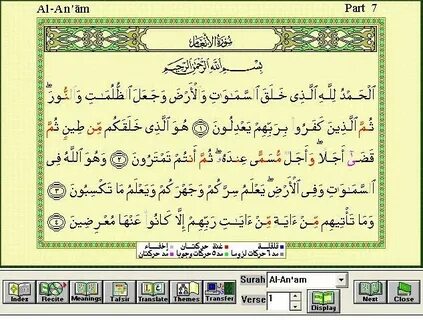 Al-An'ām Part 7
سورة الأنعام
بِسْمِ اللَّهِ الرَّحْمَٰنِ الرَّحِيمِ
الْحَمْدُ لِلَّهِ الَّذِي خَلَقَ السَّمَٰوَٰتِ وَالْأَرْضَ وَجَعَلَ الظُّلُمَٰتِ وَالنُّورَ ۖ
ثُمَّ الَّذِينَ كَفَرُوا بِرَبِّهِمْ يَعْدِلُونَ ۝١ هُوَ الَّذِي خَلَقَكُم مِّن طِينٍ ثُمَّ
قَضَىٰ أَجَلًا ۖ وَأَجَلٌ مُّسَمًّى عِندَهُ ۖ ثُمَّ أَنتُمْ تَمْتَرُونَ ۝٢ وَهُوَ اللَّهُ فِي
السَّمَٰوَٰتِ وَفِي الْأَرْضِ ۖ يَعْلَمُ سِرَّكُمْ وَجَهْرَكُمْ وَيَعْلَمُ مَا تَكْسِبُونَ ۝٣
وَمَا تَأْتِيهِم مِّنْ ءَايَةٍ مِّنْ ءَايَٰتِ رَبِّهِمْ إِلَّا كَانُوا عَنْهَا مُعْرِضِينَ ۝٤
قلقلة غنة حركتان إخفاء
مد ٦ حركات لزوما مد ٥ حركات وجوبا مد حركتان
Surah Al-An'am
Index Recite Meanings Tafsir Translate Themes Transfer Verse 1 Display Next Close